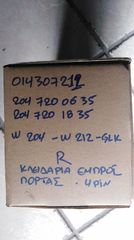 014307212
204 720 06 35
204 720 18 35
W 204 - W 212 - GLK
R
ΚΛΕΙΔΑΡΙΑ ΕΜΠΡΟΣ
ΠΟΡΤΑΣ . 4 PIN